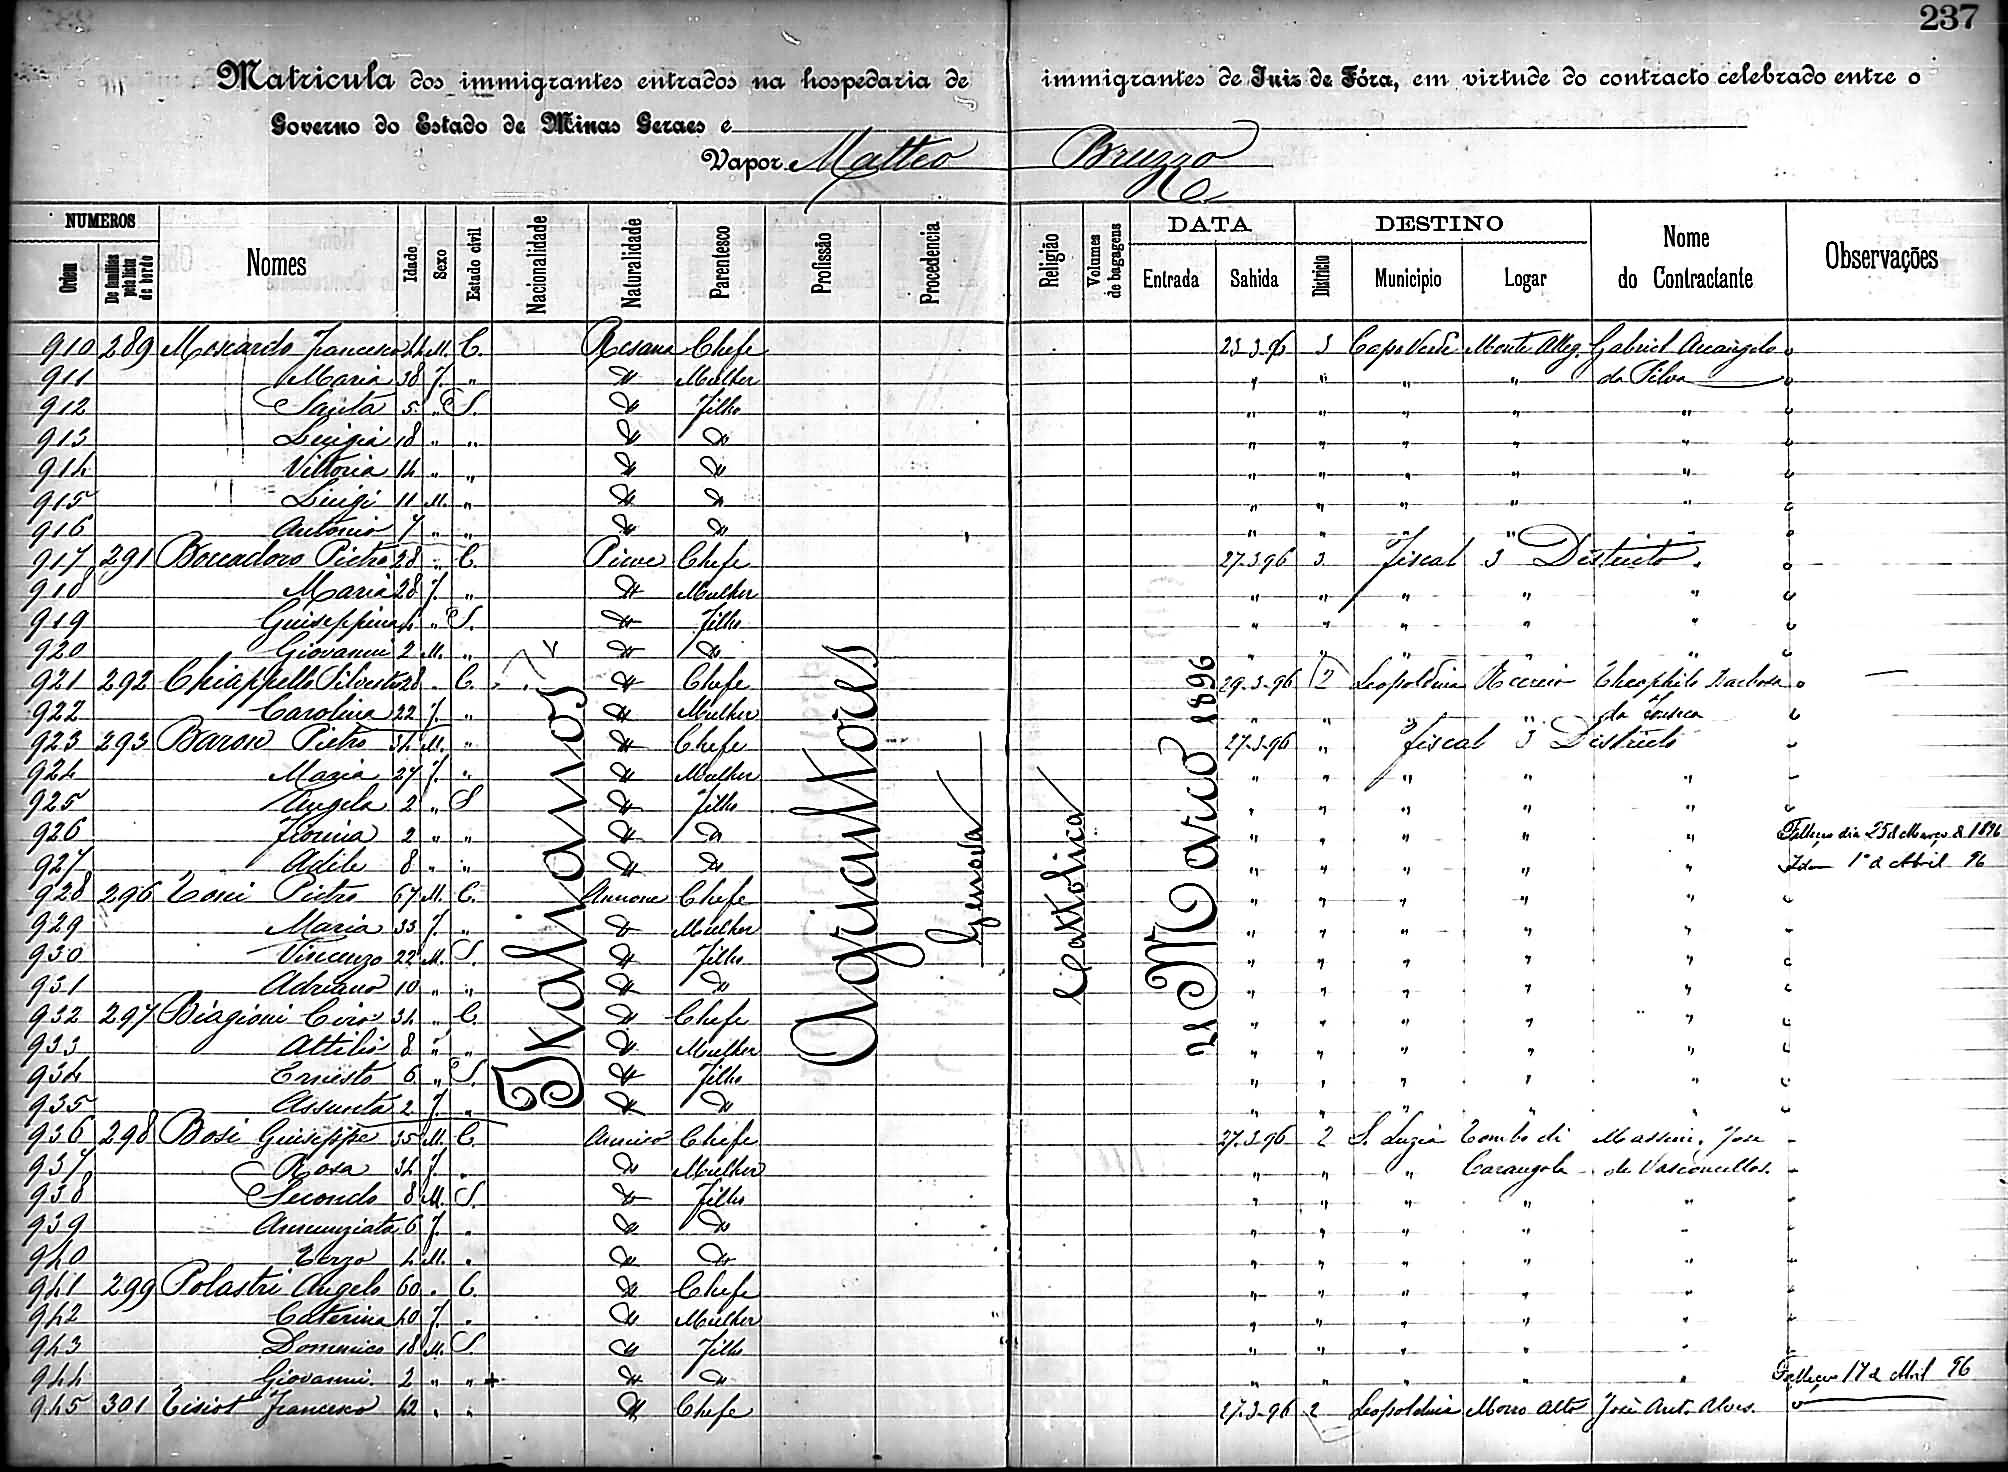 237
Matricula dos immigrantes entrados na hospedaria de immigrantes de Juiz de Fóra, em virtude do contracto celebrado entre o
Governo do Estado de Minas Geraes e
Vapor Matteo Bruzzo
NUMEROS DATA DESTINO
Ordem De familias pela lista de bordo Nomes Idade Sexo Estado civil Nacionalidade Naturalidade Parentesco Profissão Procedencia Religião Volumes de bagagens Entrada Sahida Districto Municipio Logar Nome do Contractante Observações
Italianos Agricultores Genova Cattolica 21 Março 1896
910 289 Moscardo Francesco 44 M. C. Resana Chefe 23-3-96 3 Capo Verde Monte Alleg. Gabriel Arcangelo
911 Maria 38 F. " " Mulher " " " " da Silva
912 Santa 5 " S. " Filho " " " " "
913 Luigia 18 " " " " " " " " "
914 Vittoria 14 " " " " " " " " "
915 Luigi 11 M. " " " " " " " "
916 Antonio 7 " " " " " " " " "
917 291 Boccadoro Pietro 28 " C. Pieve Chefe 27-3-96 3 Fiscal 3 Districto
918 Maria 28 F. " " Mulher " " " " "
919 Guiseppina 4 " S. " Filho " " " " "
920 Giovanni 2 M. " " " " " " " "
921 292 Chiappello Silvestro 28 " C. " Chefe 29-3-96 2 Leopoldina Recreio Theophilo Barbosa
922 Carolina 22 F. " " Mulher " " " " da Fonseca
923 293 Baron Pietro 34 M. " " Chefe 27-3-96 " Fiscal 3 Districto
924 Maria 27 F. " " Mulher " " " " "
925 Angela 2 " S " Filho " " " " "
926 2 " " " " " " " " " Falleceu dia 25 de Março de 1896
927 Adile 8 " " " " " " " " " Idem 1º de Abril 96
928 296 Pietro 67 M. C. Annone Chefe " " " " "
929 Maria 33 F. " " Mulher " " " " "
930 Vincenzo 22 M. S. " Filho " " " " "
931 Adriano 10 " " " " " " " " "
932 297 Biagioni Ciro 34 " C. " Chefe " " " " "
933 Attilio 8 " " " Mulher " " " " "
934 Ernesto 6 " S. " Filho " " " " "
935 Assunta 2 F. " " " " " " " "
936 298 Bosi Guiseppe 35 M. C. Chefe 27-3-96 2 S. Luzia Tombo di Massimi, Jose
937 Rosa 34 F. " " Mulher " " " Carangola de Vasconcellos.
938 Secondo 8 M. S. " Filho " " " " "
939 Annunziata 6 F. " " " " " " " "
940 Terzo 4 M. " " " " " " " "
941 299 Polastri Angelo 60 " C. " Chefe " " " " "
942 Catterina 40 F. " " Mulher " " " " "
943 Domenico 18 M. S. " Filho " " " " "
944 Giovanni 2 " " + " " " " " " " Falleceu 17 de Abril 96
945 301 Tisiot Francesco 42 " " " Chefe 27-3-96 2 Leopoldina Morro Alto José Ant. Alves.